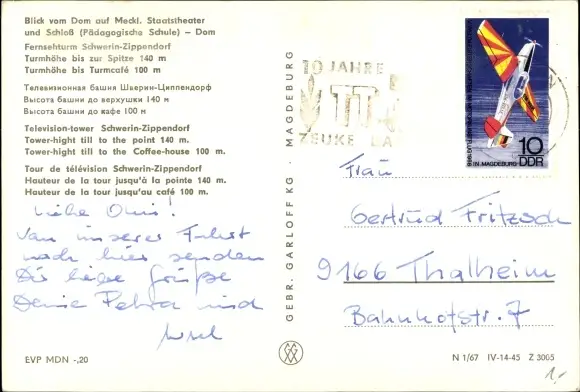 Blick vom Dom auf Meckl. Staatstheater
und Schloß (Pädagogische Schule) – Dom
Fernsehturm Schwerin-Zippendorf
Turmhöhe bis zur Spitze 140 m
Turmhöhe bis Turmcafé 100 m
Телевизионная башня Шверин-Циппендорф
Высота башни до верхушки 140 м
Высота башни до кафе 100 м
Television-tower Schwerin-Zippendorf
Tower-hight till to the point 140 m.
Tower-hight till to the Coffee-house 100 m.
Tour de télévision Schwerin-Zippendorf
Hauteur de la tour jusqu'à la pointe 140 m.
Hauteur de la tour jusqu'au café 100 m.
Liebe Omi!
Von unserer Fahrt
nach hier senden
Dir liebe Grüße
Deine Petra und
EVP MDN -,20
GEBR. GARLOFF KG · MAGDEBURG
10 JAHRE
TT
ZEUKE
10
DDR
IN MAGDEBURG
Frau
Gertrud Fritzsch
9166 Thalheim
Bahnhofstr. 7
N 1/67 IV-14-45 Z 3005
1,-